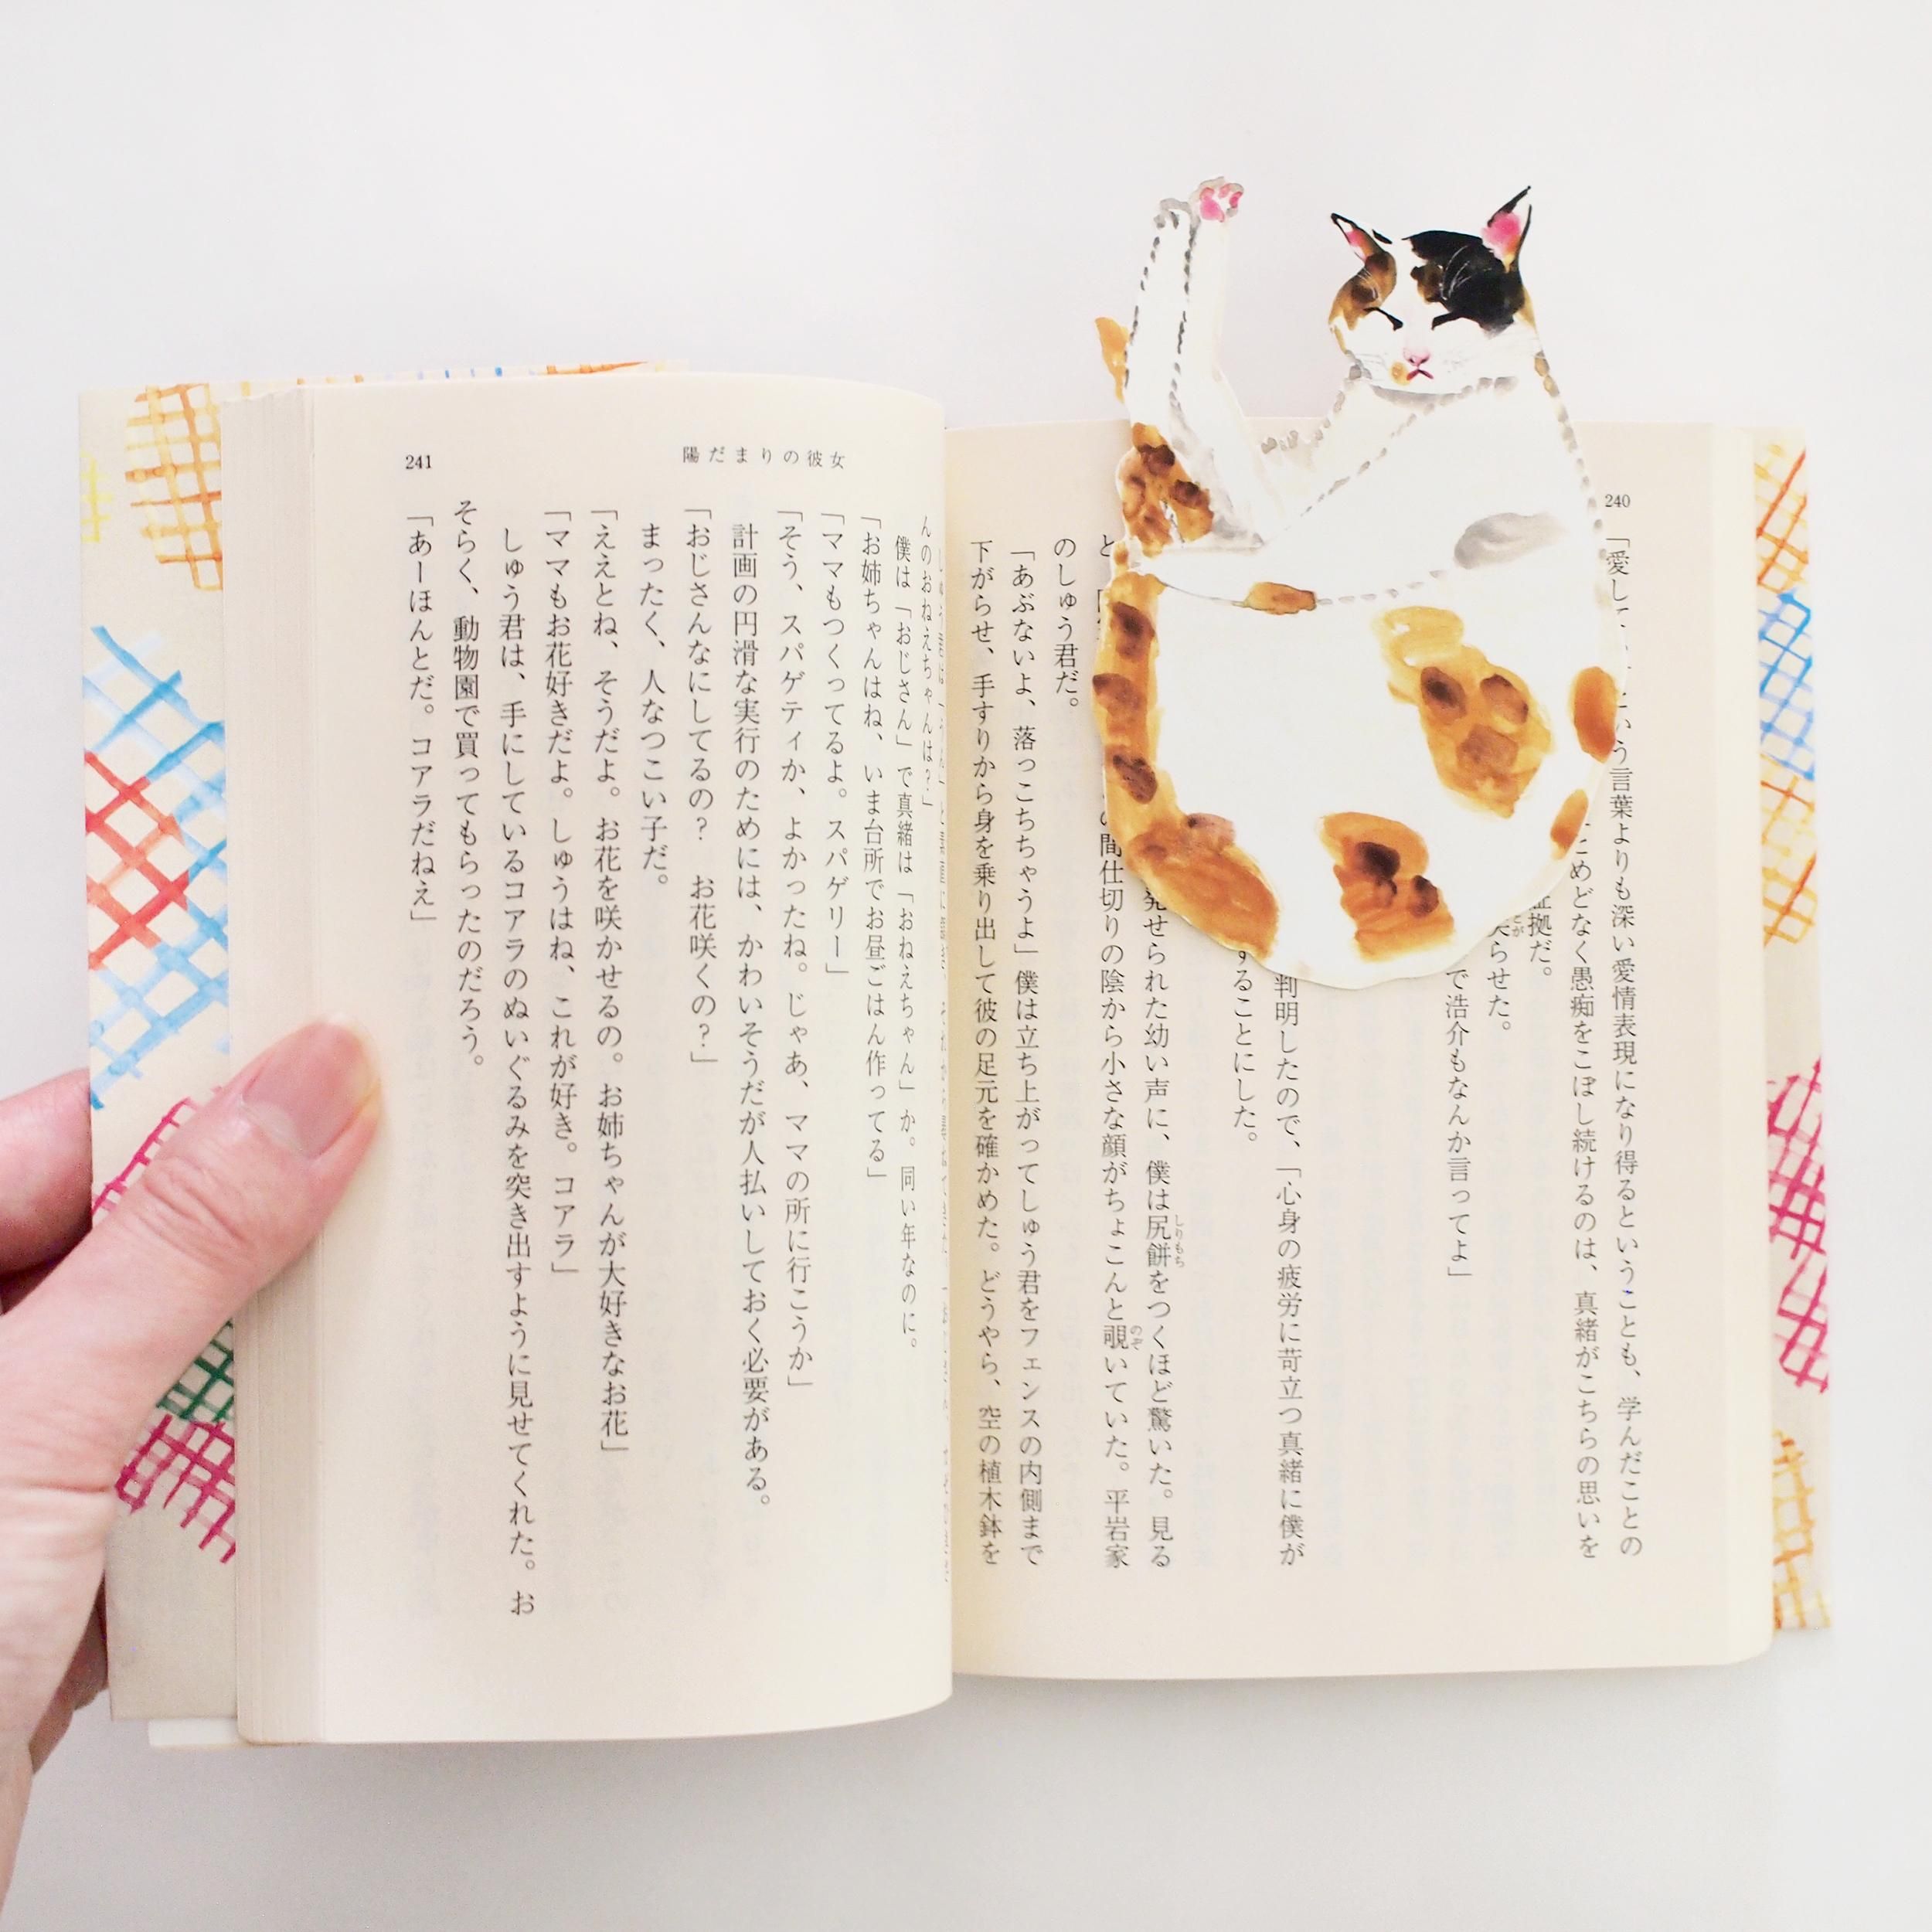 240
「愛し
いう言葉よりも深い愛情表現になり得るということも、学んだことの
めどなく愚痴をこぼし続けるのは、真緒がこちらの思いを
証拠だ。
らせた。
で浩介もなんか言ってよ」
判明したので、「心身の疲労に苛立つ真緒に僕が
することにした。
発せられた幼い声に、僕は尻餅をつくほど驚いた。見る
しりもち
と
の間仕切りの陰から小さな顔がちょこんと覗いていた。平岩家
のぞ
のしゅう君だ。
「あぶないよ、落っこちちゃうよ」僕は立ち上がってしゅう君をフェンスの内側まで
下がらせ、手すりから身を乗り出して彼の足元を確かめた。どうやら、空の植木鉢を
陽だまりの彼女
241
んのおねえちゃんは？」
僕は「おじさん」で真緒は「おねえちゃん」か。同い年なのに。
「お姉ちゃんはね、いま台所でお昼ごはん作ってる」
「ママもつくってるよ。スパゲリー」
「そう、スパゲティか、よかったね。じゃあ、ママの所に行こうか」
計画の円滑な実行のためには、かわいそうだが人払いしておく必要がある。
「おじさんなにしてるの？　お花咲くの？」
まったく、人なつこい子だ。
「ええとね、そうだよ。お花を咲かせるの。お姉ちゃんが大好きなお花」
「ママもお花好きだよ。しゅうはね、これが好き。コアラ」
しゅう君は、手にしているコアラのぬいぐるみを突き出すように見せてくれた。お
そらく、動物園で買ってもらったのだろう。
「あーほんとだ。コアラだねえ」